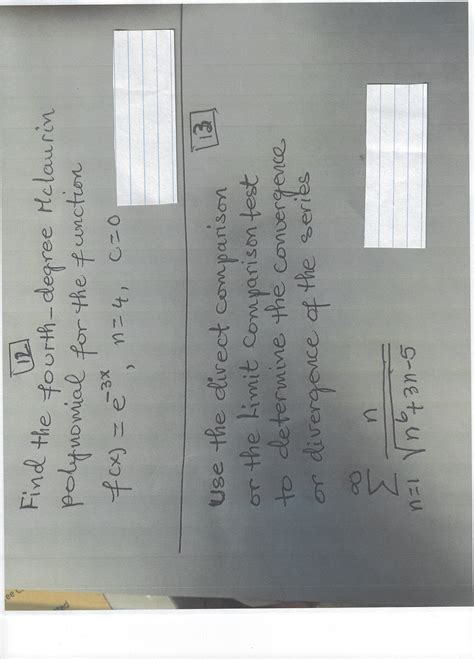 12
Find the fourth-degree Mclaurin
polynomial for the function
f(x) = e^{-3x}, n=4, c=0
13
Use the direct comparison
or the Limit comparison test
to determine the convergence
or divergence of the series
∞
∑ n / √(n^6+3n-5)
n=1